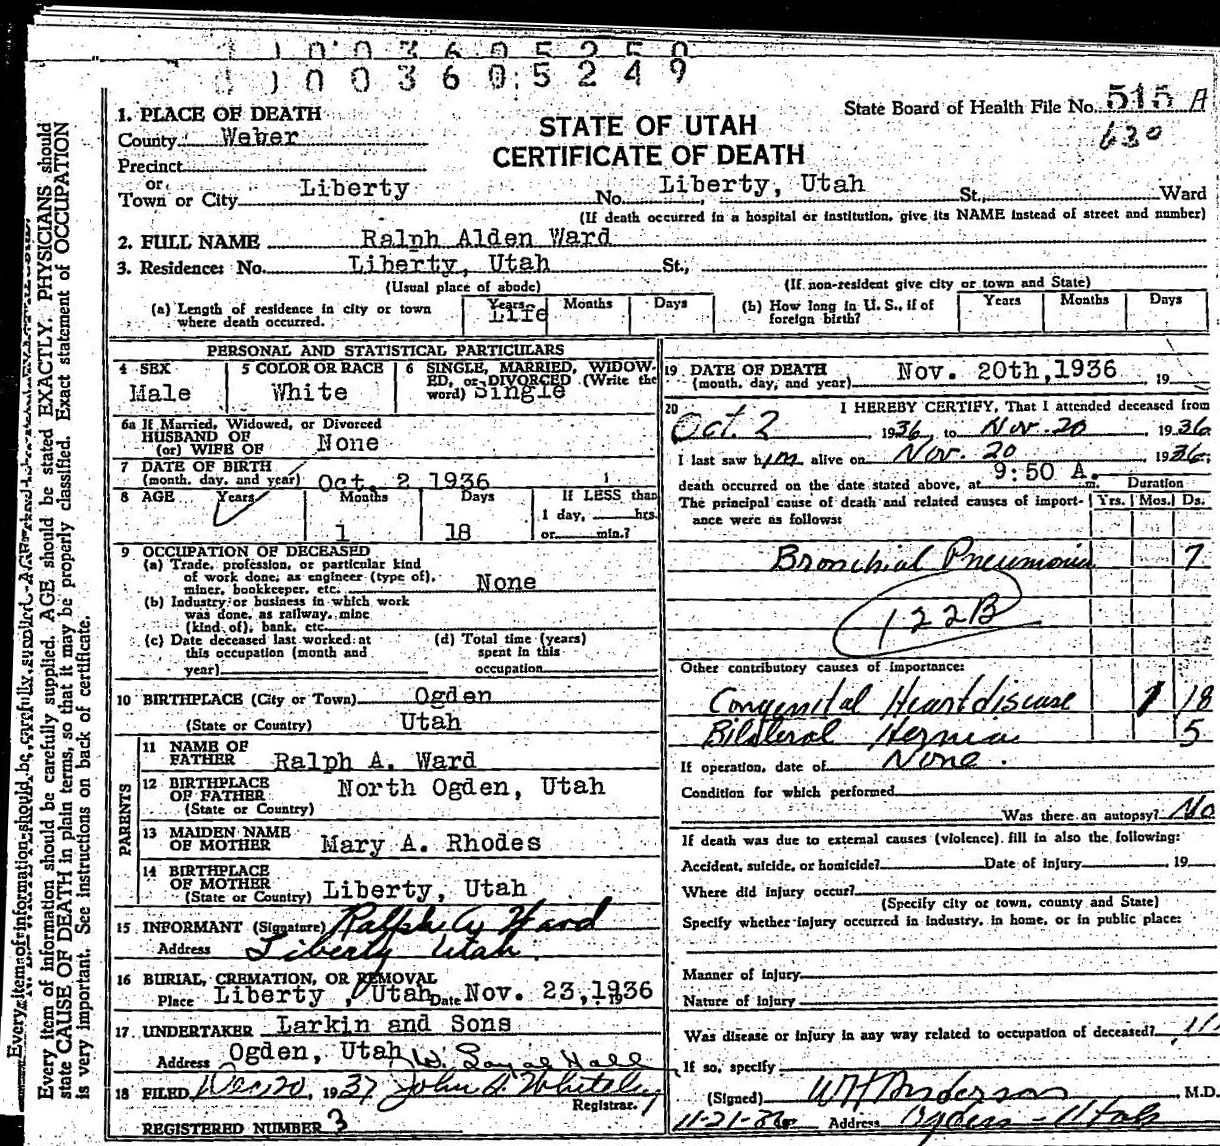 1 0 0 3 6 0 5 2 5 0
1 0 0 3 6 0 5 2 4 9
State Board of Health File No. 515 A
630
STATE OF UTAH
CERTIFICATE OF DEATH
1. PLACE OF DEATH
County Weber
Precinct
or
Town or City Liberty No. Liberty, Utah St., Ward
(If death occurred in a hospital or institution, give its NAME instead of street and number)
2. FULL NAME Ralph Alden Ward
3. Residence: No. Liberty, Utah St.,
(Usual place of abode) (If non-resident give city or town and State)
(a) Length of residence in city or town where death occurred. Years Life Months Days
(b) How long in U. S., if of foreign birth? Years Months Days
PERSONAL AND STATISTICAL PARTICULARS
4 SEX Male
5 COLOR OR RACE White
6 SINGLE, MARRIED, WIDOWED, or DIVORCED (Write the word) Single
6a If Married, Widowed, or Divorced
HUSBAND OF
(or) WIFE OF None
7 DATE OF BIRTH
(month, day, and year) Oct. 2 1936
8 AGE Years Months 1 Days 18
If LESS than
1 day, hrs.
or min.?
9 OCCUPATION OF DECEASED
(a) Trade, profession, or particular kind
of work done; as engineer (type of),
miner, bookkeeper, etc. None
(b) Industry or business in which work
was done, as railway, mine
(kind of), bank, etc.
(c) Date deceased last worked at
this occupation (month and
year)
(d) Total time (years)
spent in this
occupation
10 BIRTHPLACE (City or Town) Ogden
(State or Country) Utah
PARENTS
11 NAME OF
FATHER Ralph A. Ward
12 BIRTHPLACE
OF FATHER North Ogden, Utah
(State or Country)
13 MAIDEN NAME
OF MOTHER Mary A. Rhodes
14 BIRTHPLACE
OF MOTHER
(State or Country) Liberty, Utah
15 INFORMANT (Signature) Ralph A Ward
Address Liberty Utah.
16 BURIAL, CREMATION, OR REMOVAL
Place Liberty, Utah Date Nov. 23, 1936
17 UNDERTAKER Larkin and Sons
Address Ogden, Utah
18 FILED Dec 20, 1937 John A. Whiteley
Registrar.
REGISTERED NUMBER 3
19 DATE OF DEATH
(month, day, and year) Nov. 20th, 1936 19
20 I HEREBY CERTIFY, That I attended deceased from
Oct. 2, 1936, to Nov. 20, 1936
I last saw him alive on Nov. 20 1936;
death occurred on the date stated above, at 9:50 A. m. Duration
The principal cause of death and related causes of importance were as follows: Yrs. Mos. Ds.
Bronchial Pneumonia 7
122B
Other contributory causes of importance:
Congenital Heart disease 1 18
Bilateral Hernia 5
If operation, date of None.
Condition for which performed
Was there an autopsy? No
If death was due to external causes (violence) fill in also the following:
Accident, suicide, or homicide? Date of injury 19
Where did injury occur?
(Specify city or town, county and State)
Specify whether injury occurred in industry, in home, or in public place:
Manner of injury
Nature of injury
Was disease or injury in any way related to occupation of deceased?
If so, specify
(Signed) W H Anderson, M.D.
11-21-36 Address Ogden - Utah
Every item of information should be carefully supplied. AGE should be stated EXACTLY. PHYSICIANS should
state CAUSE OF DEATH in plain terms, so that it may be properly classified. Exact statement of OCCUPATION
is very important. See instructions on back of certificate.